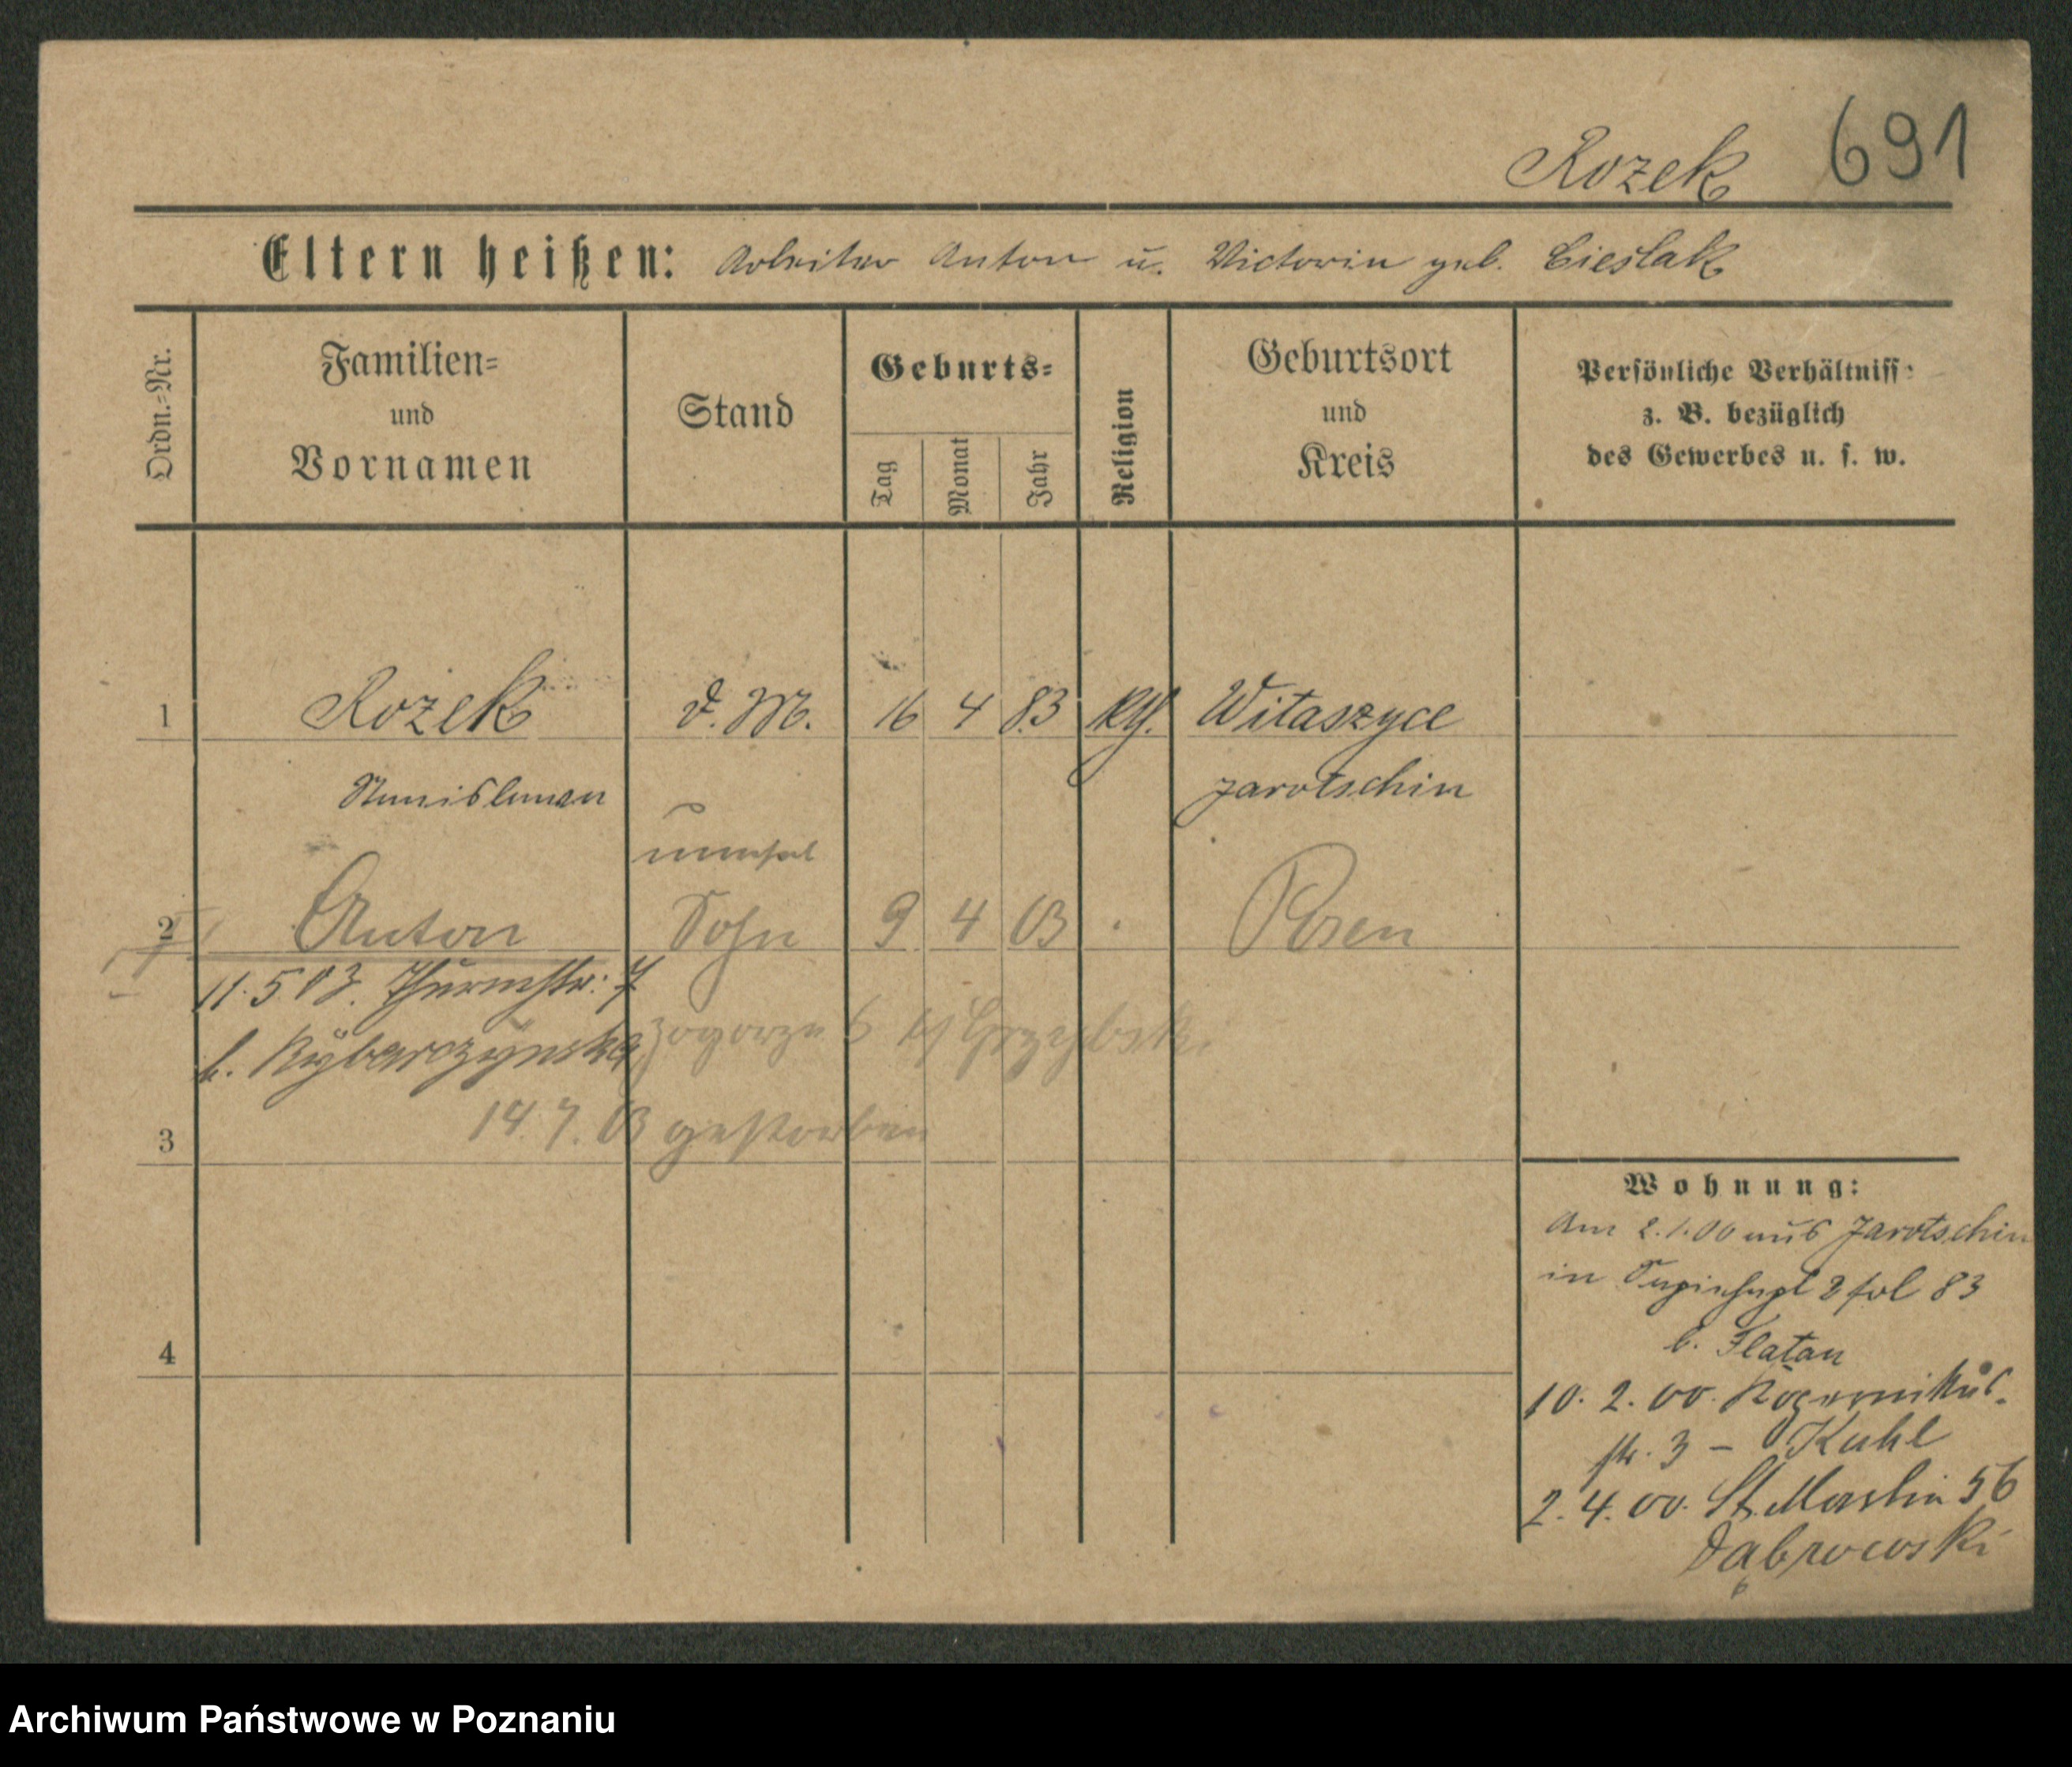 Rozek 691
Eltern heißen: Arbeiter Anton u. Victoria geb. Cieślak
Ordn.-Nr.
Familien-
und
Vornamen
Stand
Geburts-
Tag
Monat
Jahr
Religion
Geburtsort
und
Kreis
Persönliche Verhältnisse
z. B. bezüglich
des Gewerbes u. s. w.
1 Rozek d. M. 16 4 83 kth. Witaszyce
Stanislawa Jarotschin
unehel
2 Anton Sohn 9 4 03 Posen
11.5.03. Thurmstr. 7
b. Rybarczynska Zagorze 6 b/ Grzybski
14.7.03 gestorben
3
4
Wohnung:
Am 2.1.00 aus Jarotschin
in 2 fol 83
b. Flatau
10. 2. 00.
str. 3 – Kuhl
2. 4. 00. St. Martin 56
Dąbrowski
Archiwum Państwowe w Poznaniu